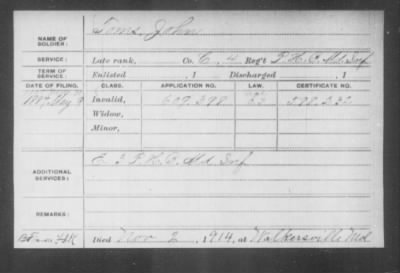 NAME OF SOLDIER: Toms, John
SERVICE: Late rank, Co. C, 4 Reg't P.H.B. Md. Inf
TERM OF SERVICE: Enlisted , 1 Discharged , 1
DATE OF FILING. CLASS. APPLICATION NO. LAW. CERTIFICATE NO.
Invalid,
Widow,
Minor,
ADDITIONAL SERVICES: C 3 P.H.B. Md. Inf
REMARKS:
Died Nov 2, 1914, at Walkersville Md.